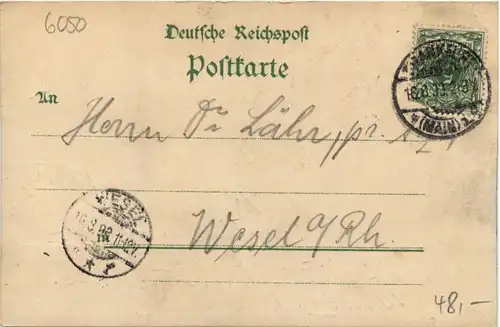 6050
Deutsche Reichspost
Postkarte
An
Herrn Dr. Lähr, pr.
Wesel a/Rh.
WESEL
(MAIN)
48,-